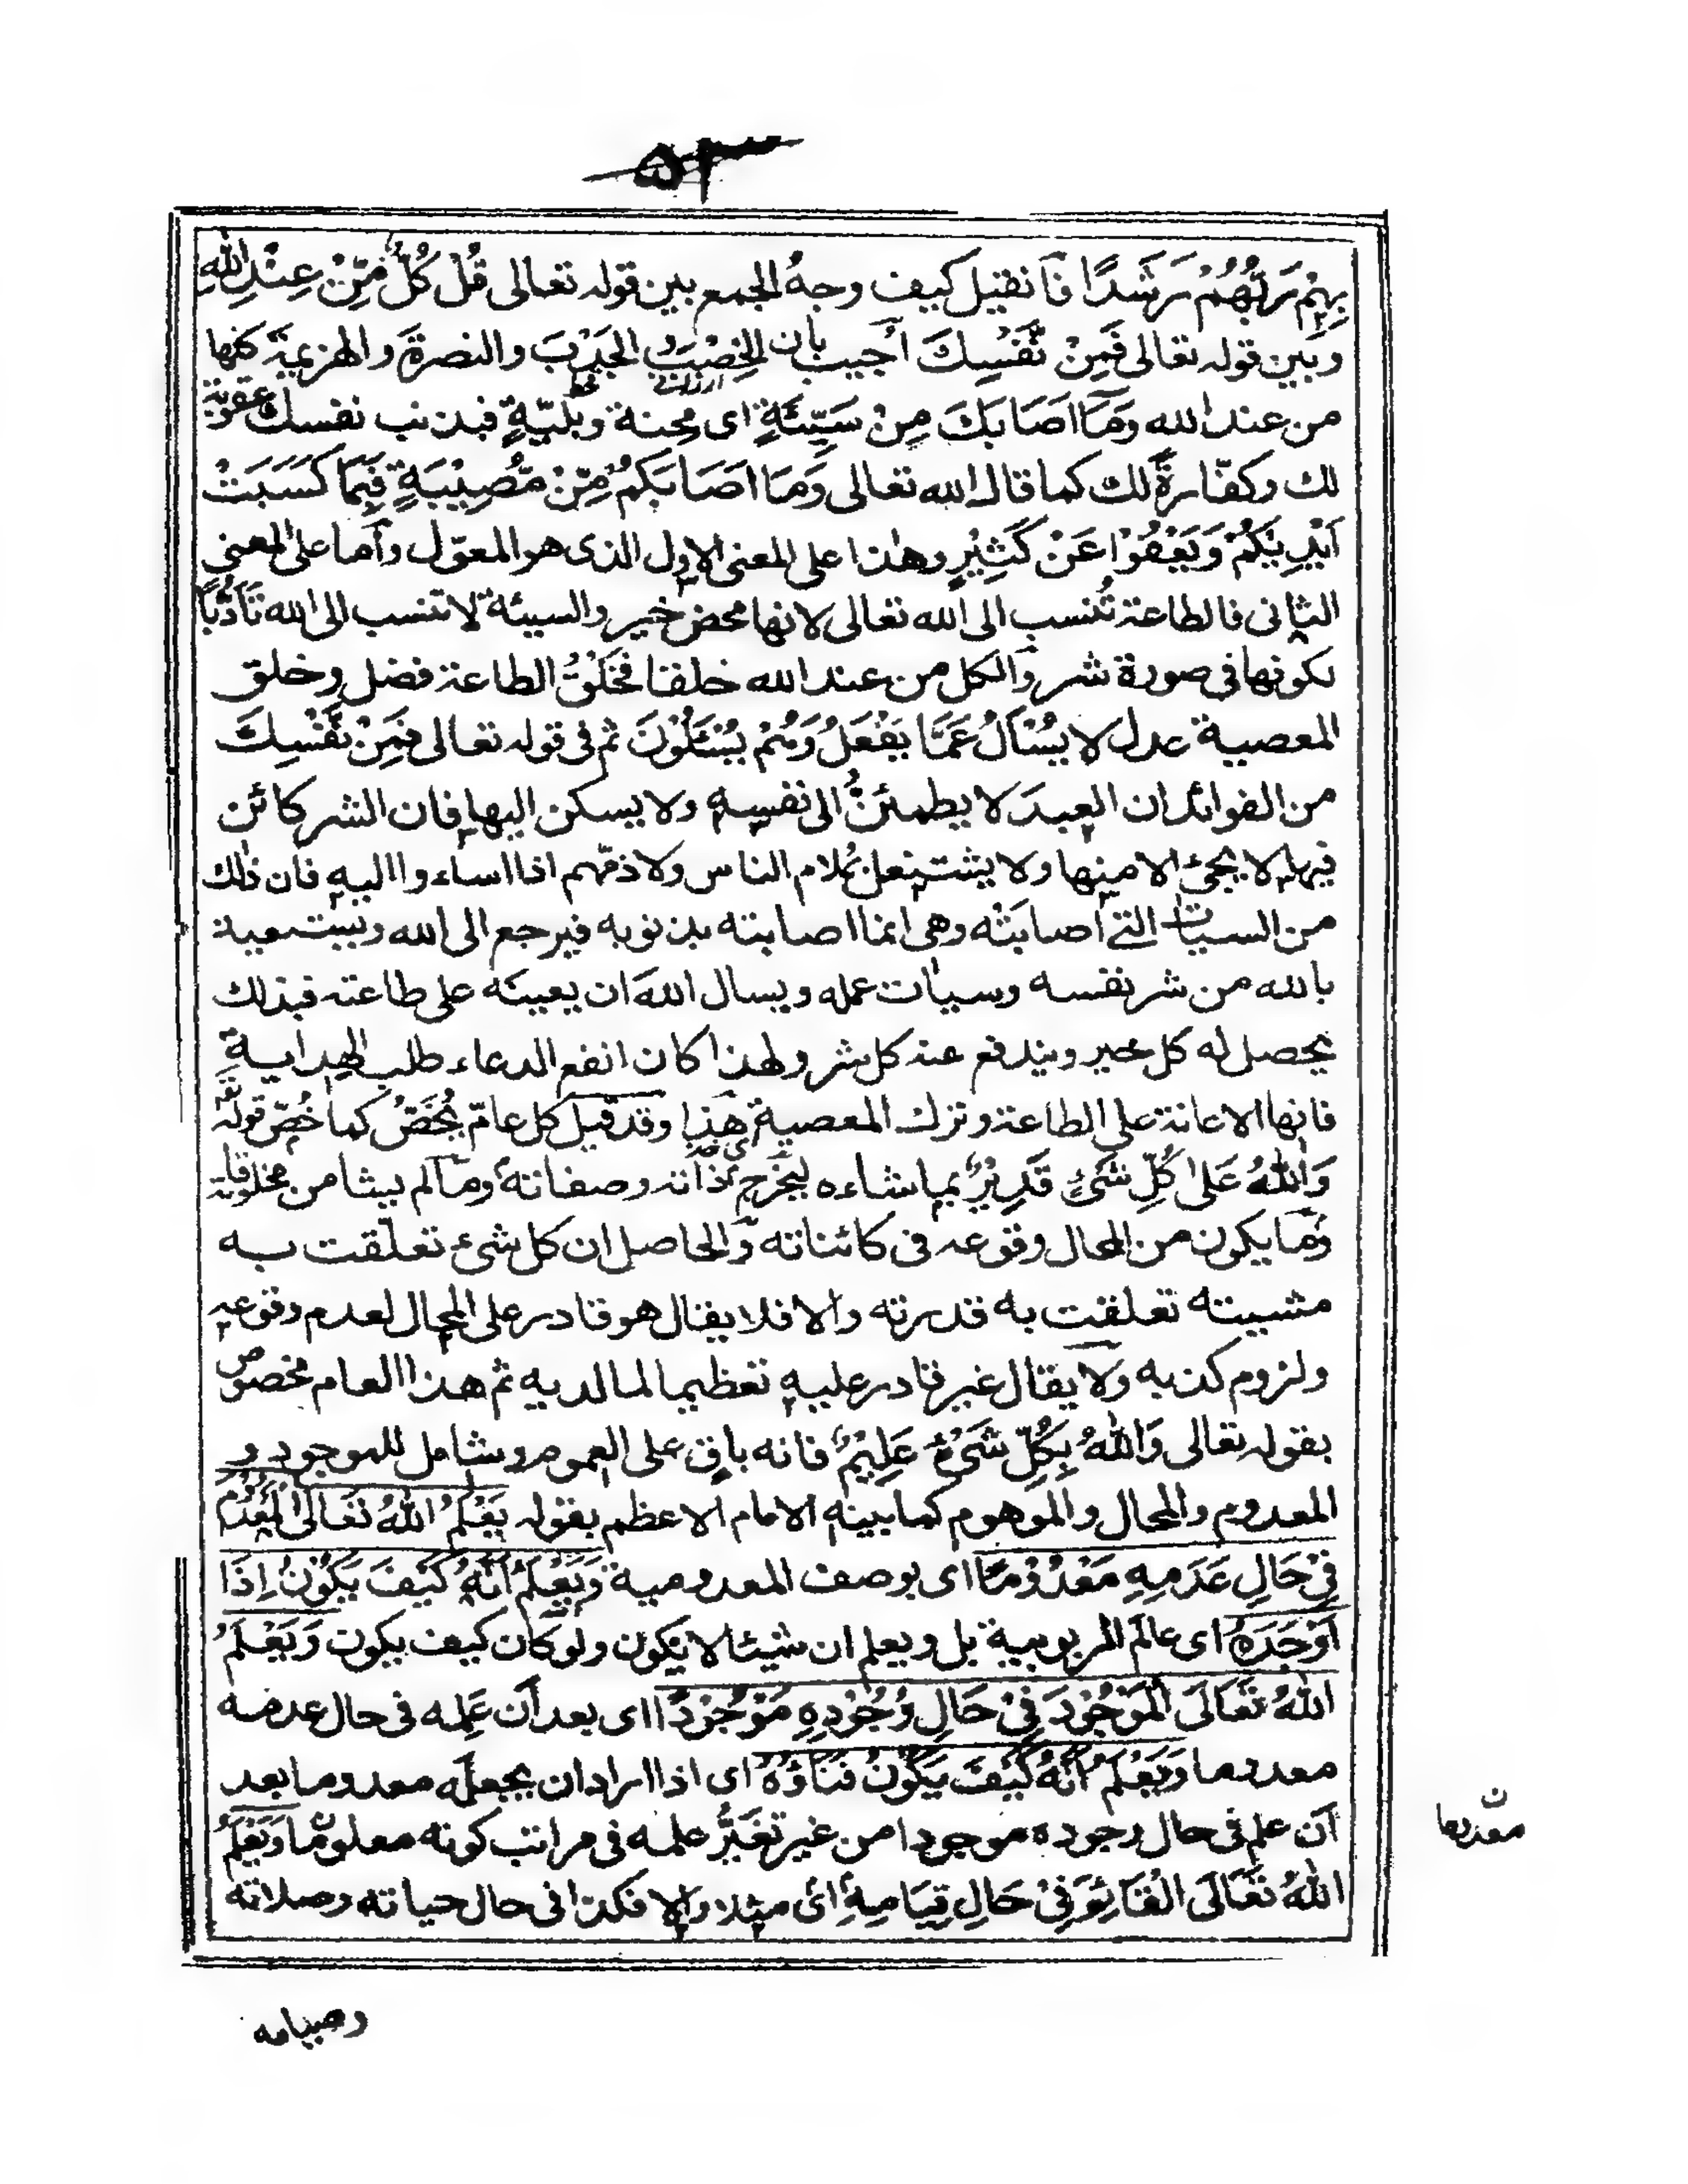 ٥٣
بِهِمْ رَبُّهُمْ رَشَدًا فَان قيل كيف وجهُ الجمع بين قوله تعالى قُلْ كُلٌّ مِّنْ عِنْدِ اللهِ
وبين قوله تعالى فَمِنْ نَّفْسِكَ أجيب بان الخِصْبَ و الجَدْبَ والنصرةَ والهزيمةَ كلها
ارزانی قحط
من عند الله وَمَا اَصَابَكَ مِنْ سَيِّئَةٍ اى محنة وبليّةٍ فبذنب نفسك عقوبة
لك وكفّارةً لك كما قال الله تعالى وَمَا اَصَابَكُمْ مِّنْ مُّصِيْبَةٍ فَبِمَا كَسَبَتْ
اَيْدِيْكُمْ وَيَعْفُوْا عَنْ كَثِيْرٍ وهٰذا على المعنى الاول الذى هو المعوّل وأما على المعنى
الثانى فالطاعة تُنسب الى الله تعالى لانها محض خير والسيئة لا تنسب الى الله تَأَدُّبًا
لكونها فى صورة شر والكل من عند الله خلقا فخَلْقُ الطاعة فضل وخلق
المعصية عدل لا يُسْأَلُ عَمَّا يَفْعَلُ وَهُمْ يُسْئَلُوْنَ ثم فى قوله تعالى فَمِنْ نَّفْسِكَ
من الفوائد ان العبدَ لا يطمئنُّ الى نفسه ولا يسكن اليها فان الشر كائن
فيها لا يجئ الا منها ولا يشتغل بملام الناس ولا ذمّهم اذا اساءوا اليه فان ذٰلك
من السيات التى اصابَتْه وهى انما اصابته بذنوبه فيرجع الى الله ويستعيذ
بالله من شر نفسه وسيأت عمله ويسال اللهَ ان يعينَه على طاعته فبذلك
يحصل له كل خير ويندفع عنه كل شر ولهذا كان انفع الدعاء طلب الهدايةِ
فانها الاعانة على الطاعة وترك المعصية هذا وقد قيل كل عامّ يُخَصُّ كما خُصّ قوله تعالى
وَاللهُ عَلىٰ كُلِّ شَىْءٍ قَدِيْرٌ بما شاءه ليخرج ذاته وصفاته وما لم يشا من مخلوقاته
وما يكون من المحال وقوعه فى كائناته والحاصل ان كل شىء تعلّقت به
مشيته تعلقت به قدرته والا فلا يقال هو قادر على المحال لعدم وقوعه
ولزوم كذبه ولا يقال غير قادر عليه تعظيما لما لديه ثم هذا العام مخصوص
بقوله تعالى وَاللهُ بِكُلِّ شَىْءٍ عَلِيْمٌ فانه باق على العموم وشامل للموجود و
المعدوم والمحال والموهوم كما بينه الامام الاعظم بقوله يَعْلَمُ اللهُ تَعَالَى الْمَعْدُوْمَ
فِىْ حَالِ عَدَمِهِ مَعْدُوْمًا اى بوصف المعدومية وَيَعْلَمُ اَنَّهُ كَيْفَ يَكُوْنُ اِذَا
اَوْجَدَهُ اى عالم الربوبية بل ويعلم ان شيئا لا يكون ولو كان كيف يكون وَيَعْلَمُ
اللهُ تَعَالَى الْمَوْجُوْدَ فِىْ حَالِ وُجُوْدِهِ مَوْجُوْدًا اى بعد أن عَلِمه فى حال عدمه
معدوما وَيَعْلَمُ اَنَّهُ كَيْفَ يَكُوْنُ فَنَاؤُهُ اى اذا اراد ان يجعلَه معدوما بعد
أن علم فى حال وجوده موجودا من غير تغيُّر علمه فى مراتب كونه معلومًا وَيَعْلَمُ
اللهُ تَعَالَى الْقَائِمَ فِىْ حَالِ قِيَامِهِ اى مثلا والا فكذا فى حال حياته وصلاته
وصيامه